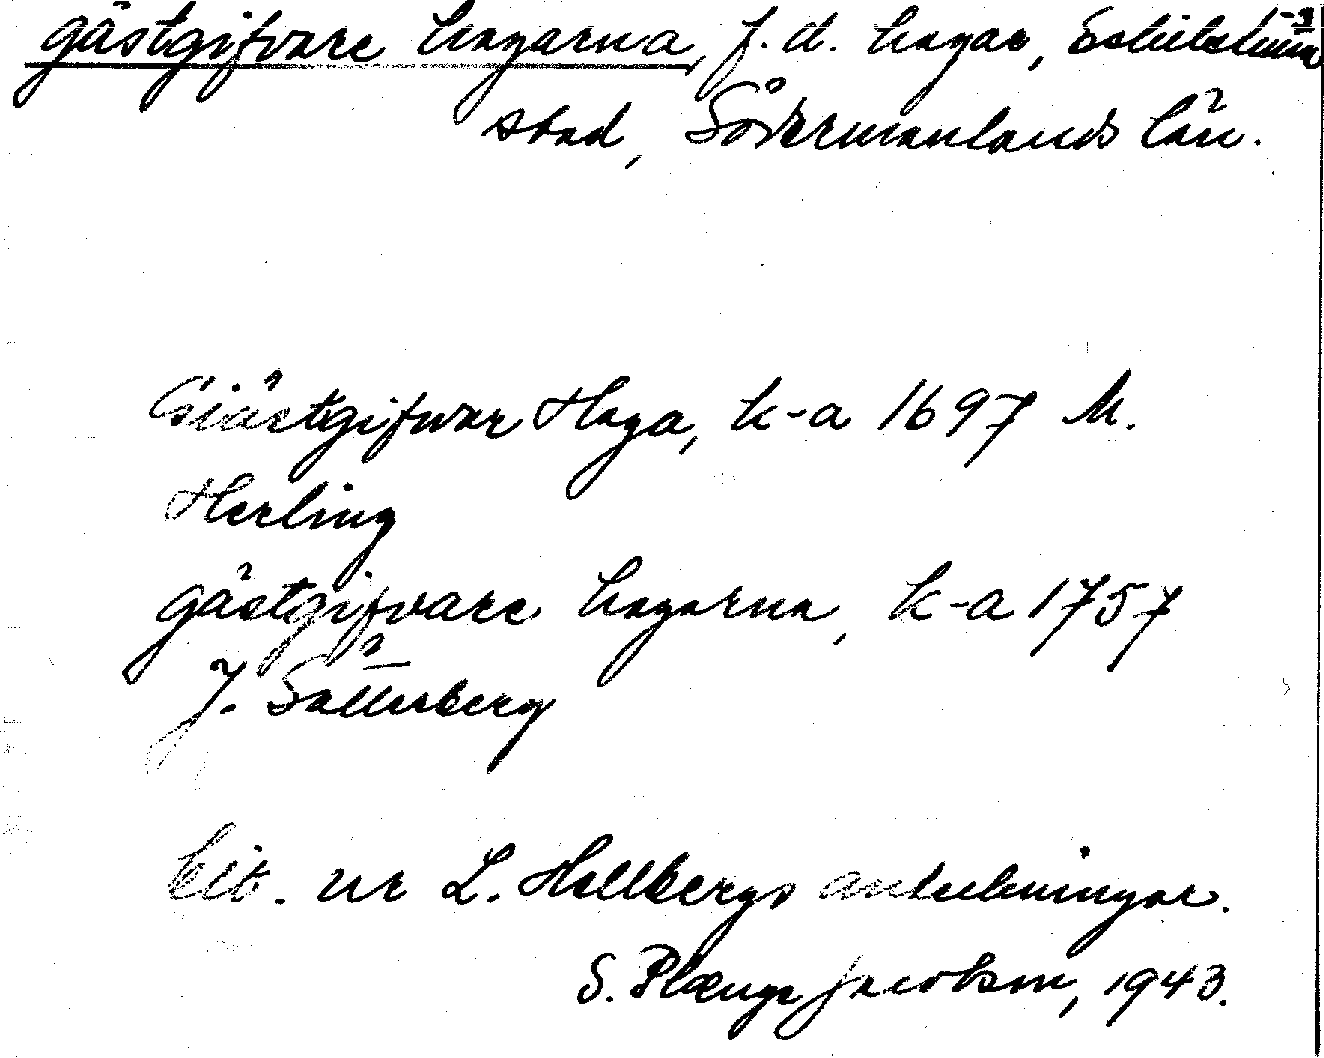 gästgifvare hagarna, f.d. hagar, Eskilstuna
stad, Södermanlands län.
Giästgifwar Haga, k-a 1697 M.
Herling
gästgifvare hagarna, k-a 1757
J. Sätterberg
Cit. ur L. Hallbergs anteckningar.
S. Plænge Jacobson, 1943.